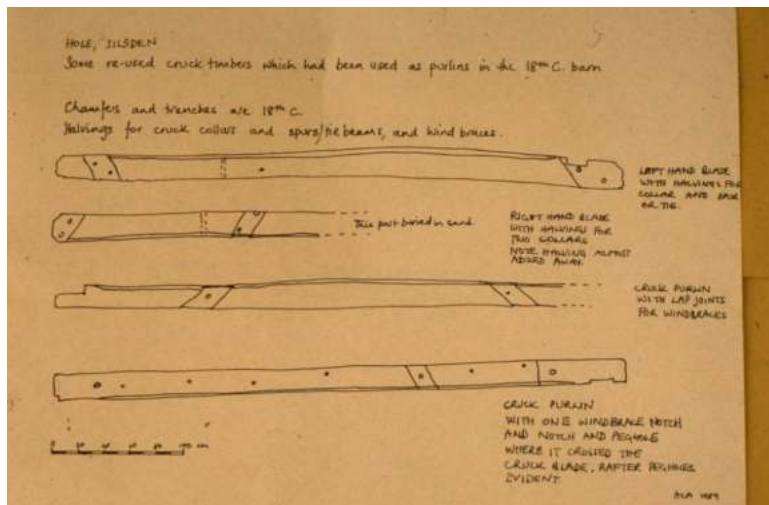 HOLE, SILSDEN
Some re-used cruck timbers which had been used as purlins in the 18th C. barn
Chamfers and trenches are 18th C.
Halvings for cruck collars and spurs/tie beams, and wind braces.
LEFT HAND BLADE
WITH HALVINGS FOR
COLLAR AND SPUR
OR TIE.
This part buried in sand
RIGHT HAND BLADE
WITH HALVINGS FOR
TWO COLLARS
NOTE HALVING ALMOST
ADZED AWAY.
CRUCK PURLIN
WITH LAP JOINTS
FOR WINDBRACES
CRUCK PURLIN
WITH ONE WINDBRACE NOTCH
AND NOTCH AND PEGHOLE
WHERE IT CROSSED THE
CRUCK BLADE, RAFTER PEGHOLES
EVIDENT
0 20 40 60 80 100 cm
ACA 1989